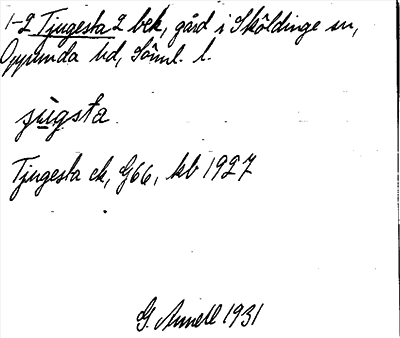 1-2 Tjugesta 2 bek, gård i Sköldinge sn,
Oppunda hd, Söml. l.
jùgsta.
Tjugesta ek, G66, kb 1927
G. Annell 1931